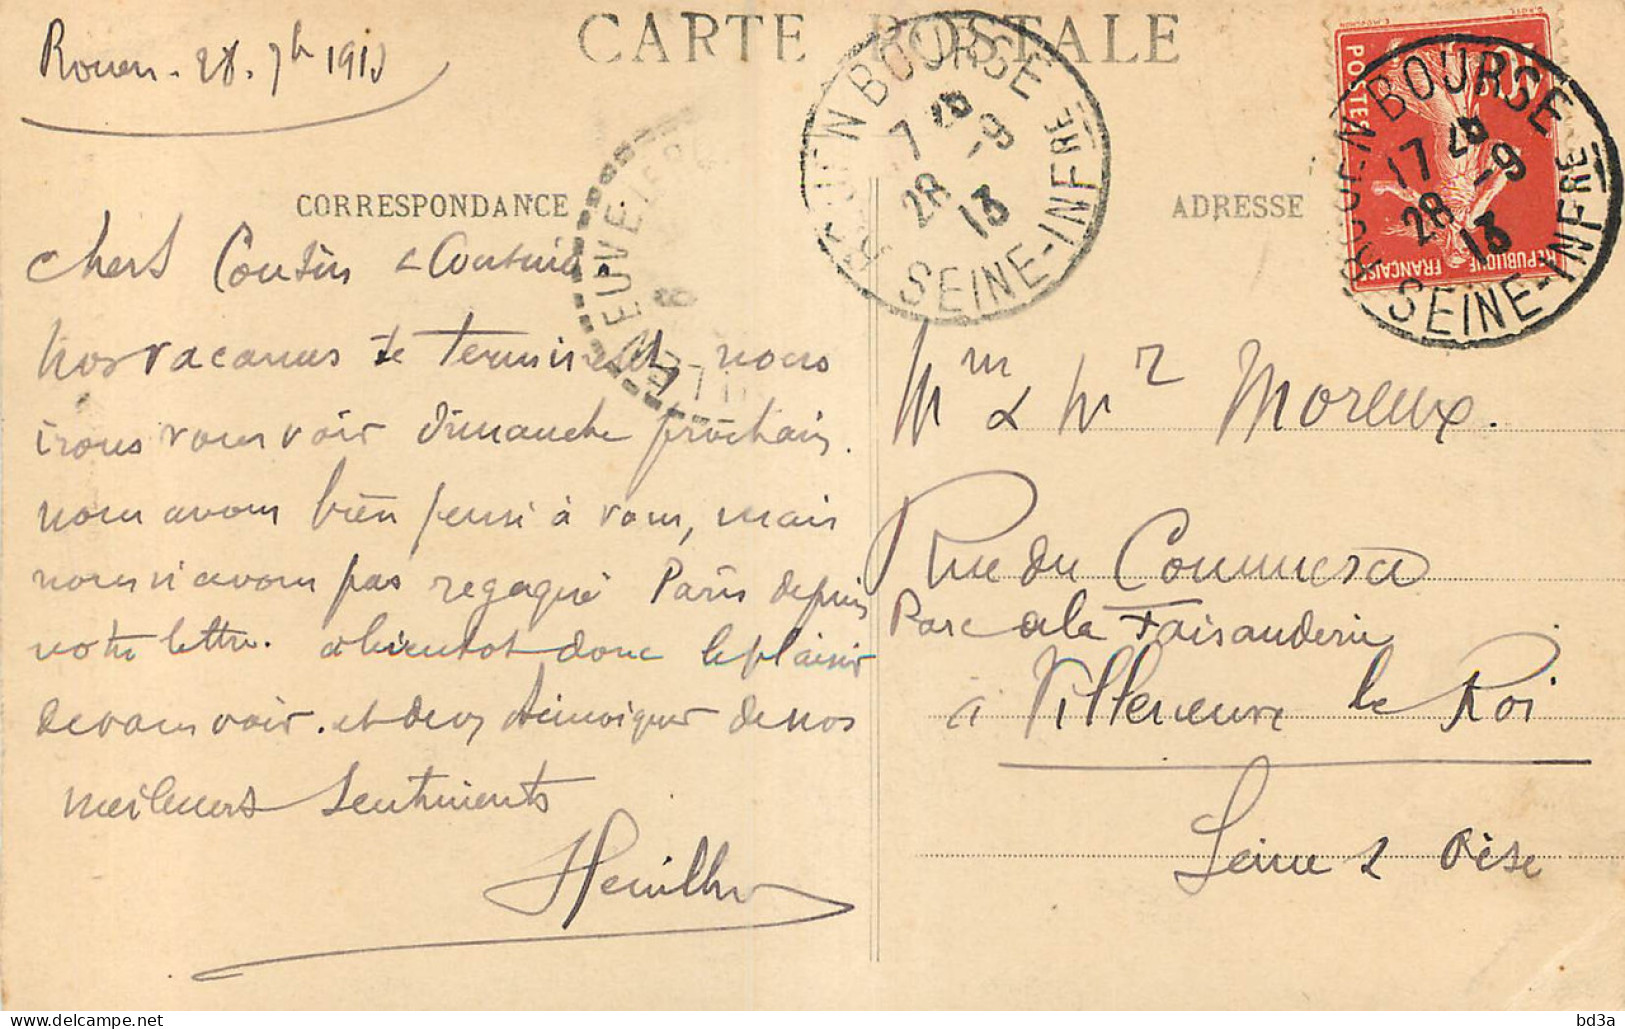 CARTE POSTALE
Rouen - 28. 7bre 1913
CORRESPONDANCE
chers Cousin & Cousine
Nos vacances se terminent, nous
irons vous voir dimanche prochain.
nous avons bien pensé à vous, mais
nous n'avons pas regagné Paris depuis
votre lettre. à bientot donc le plaisir
de vous voir. et de vous témoigner de nos
meilleurs sentiments
ROUEN BOURSE
7 28
28 - 9
13
SEINE-INFRE
NEUVE
ADRESSE
POSTES
10
REPUBLIQUE FRANÇAISE
ROUEN BOURSE
17 28
28 - 9
13
SEINE-INFRE
Mm & Mr Moreux.
Rue du Commerce
Parc de la Faisanderie
à Villeneuve le Roi
Seine & Oise
bd3a